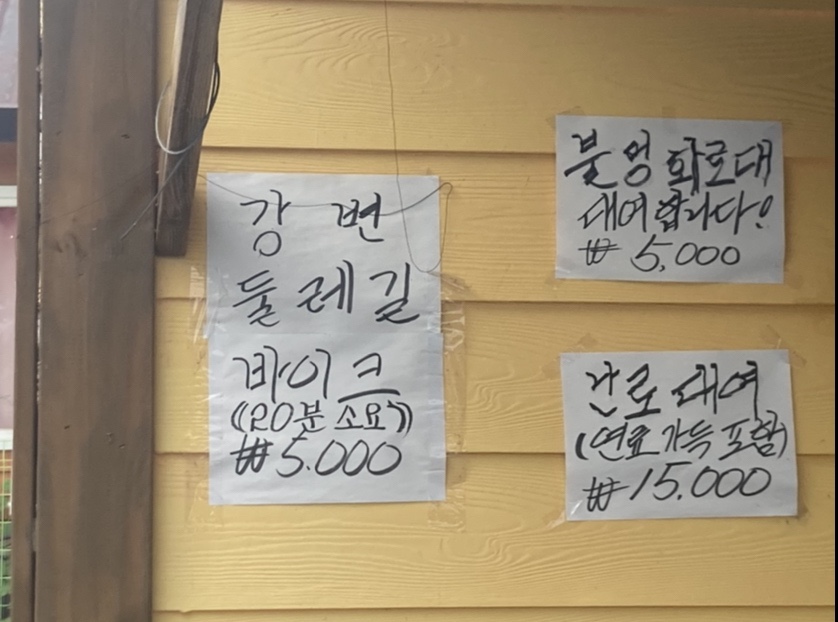 강변
둘레길
바이크
(20분 소요)
₩5.000
불멍 화로대
대여합니다!
₩5,000
난로 대여
(연료 가득 포함)
₩15.000